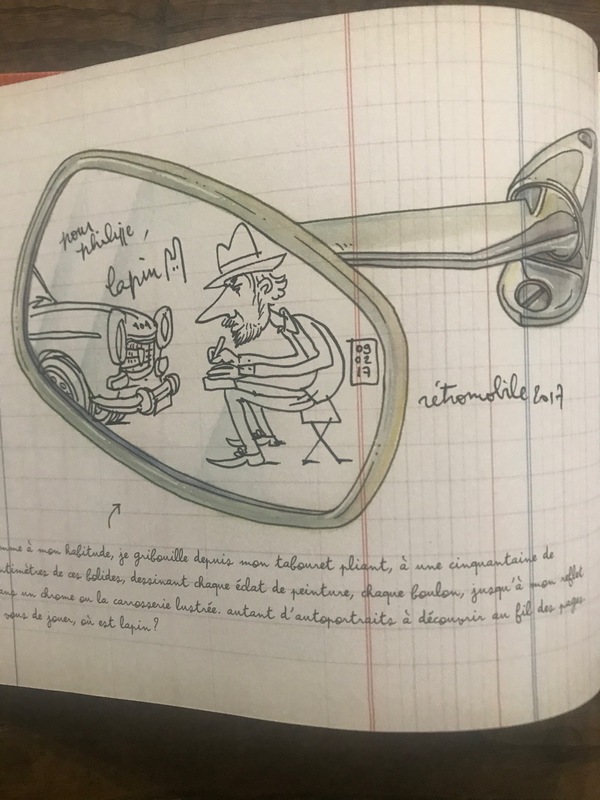 pour
philippe,
lapin
404
09
02
17
rétromobile 2017
mme à mon habitude, je gribouille depuis mon tabouret pliant, à une cinquantaine de
ntimètres de ces bolides, dessinant chaque éclat de peinture, chaque boulon, jusqu'à mon reflet
ans un chrome ou la carrosserie lustrée. autant d'autoportraits à découvrir au fil des pages.
vous de jouer, où est lapin?